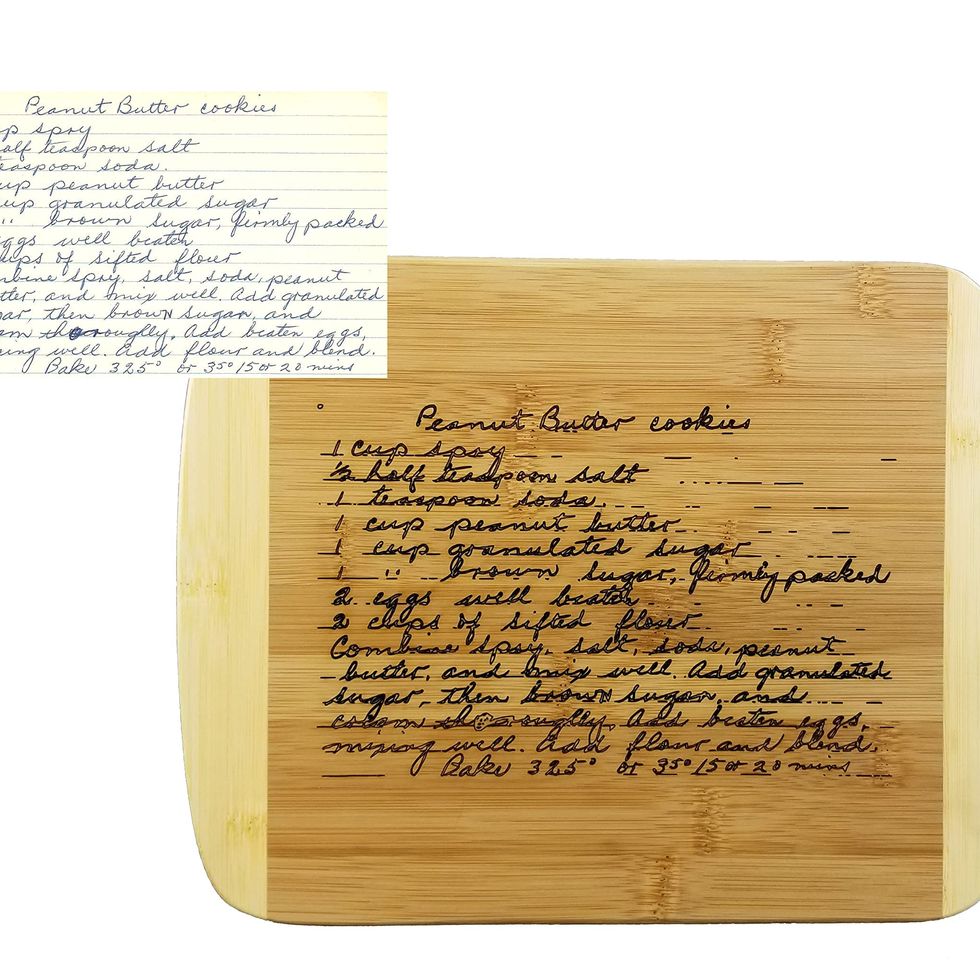 Peanut Butter cookies
p spry
alf teaspoon salt
easpoon soda.
up peanut butter
up granulated sugar
" brown sugar, firmly packed
ggs well beaten
ups of sifted flour
mbine spry, salt, soda, peanut
tter, and mix well. Add granulated
ar, then brown sugar, and
am thoroughly. Add beaten eggs,
xing well. Add flour and blend.
Bake 325° or 35° 15 or 20 mins
Peanut Butter cookies
1 cup spry
½ half teaspoon salt
1 teaspoon soda.
1 cup peanut butter
1 cup granulated sugar
1 " brown sugar, firmly packed
2 eggs well beaten
2 cups of sifted flour
Combine spry, salt, soda, peanut
butter, and mix well. Add granulated
sugar, then brown sugar, and
cream thoroughly. Add beaten eggs,
mixing well. Add flour and blend.
Bake 325° or 35° 15 or 20 mins